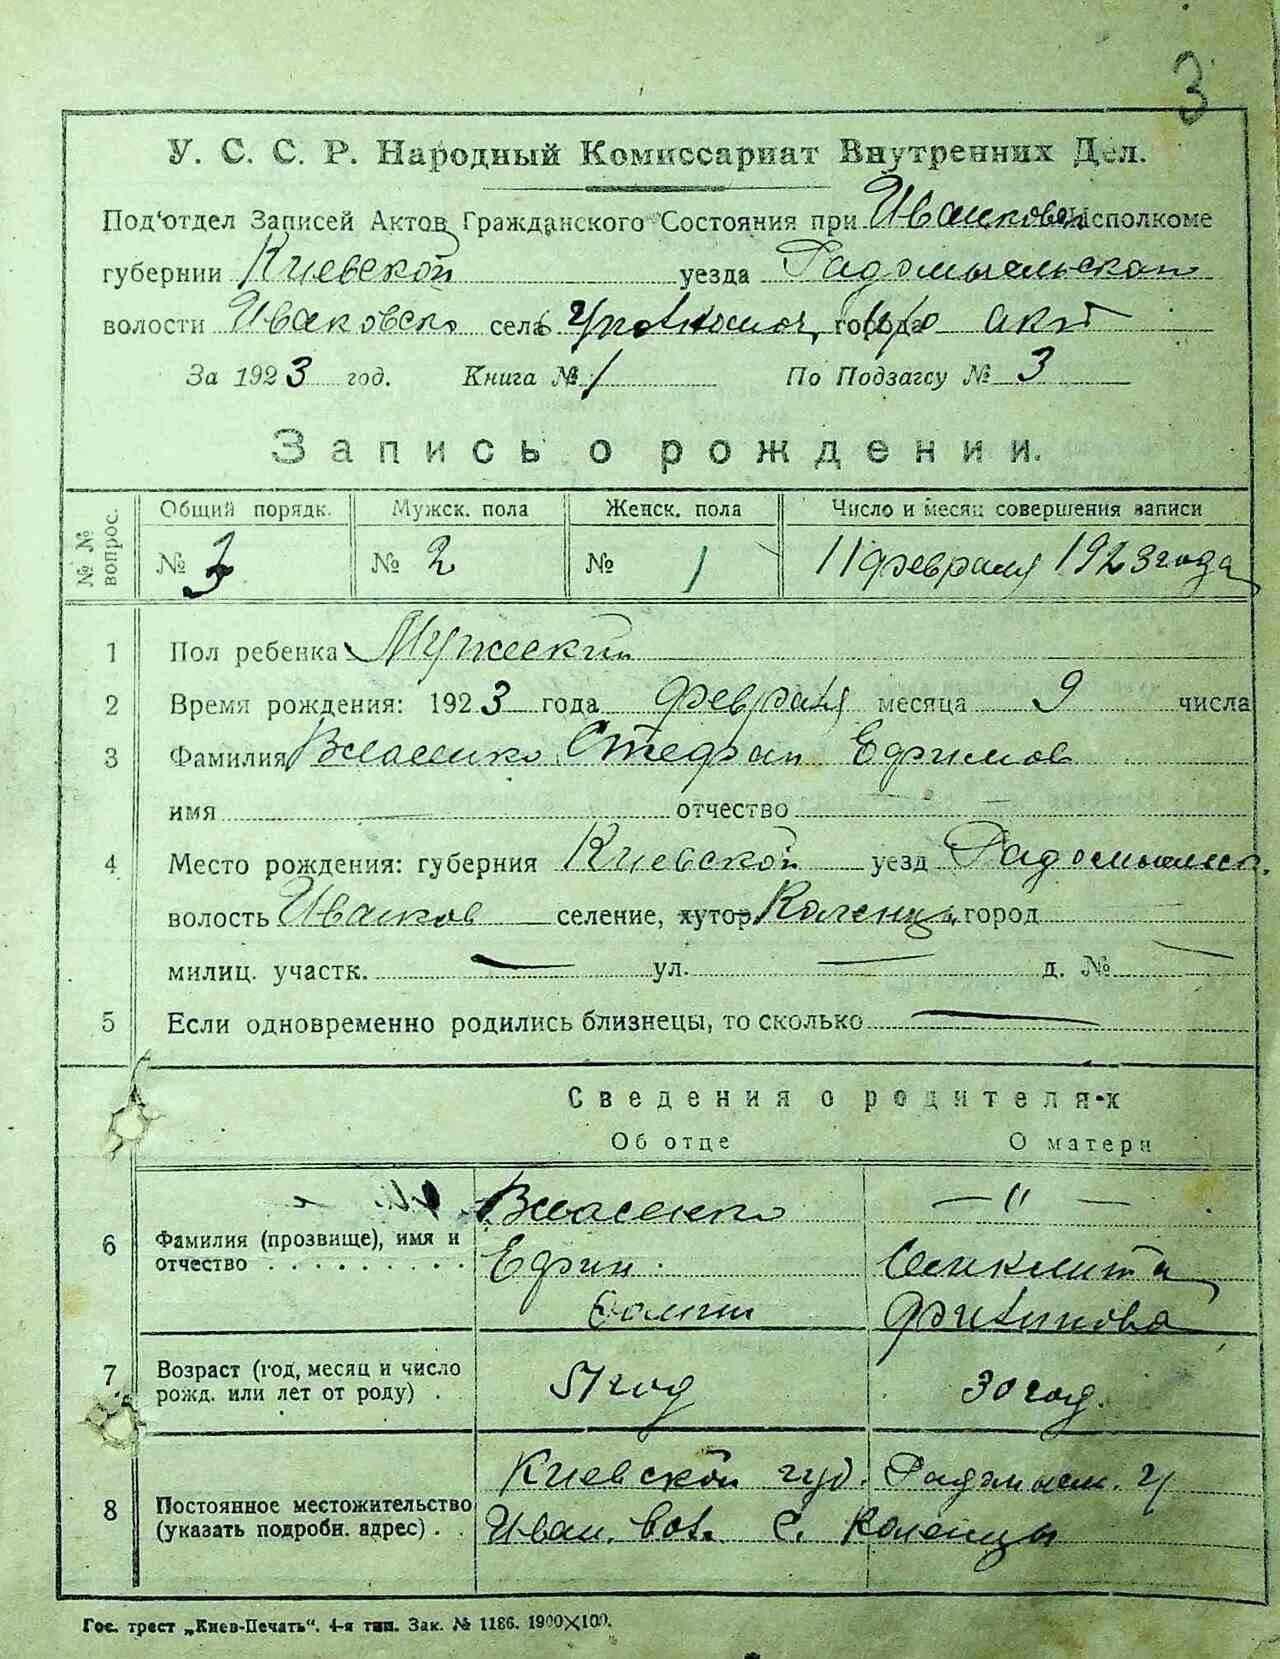 3
У. С. С. Р. Народный Комиссариат Внутренних Дел.
Под'отдел Записей Актов Гражданского Состояния при Иванков Исполкоме
губернии Киевской уезда Радомысльскаго
волости села города акт
За 1923 год. Книга № 1 По Подзагсу № 3
Запись о рождении.
№ № вопрос.
Общий порядк. Мужск. пола Женск. пола Число и месяц совершения записи
№ 3 № 2 № 1 11 февраля 1923 года
1 Пол ребенка Мужеский
2 Время рождения: 1923 года февраля месяца 9 числа
3 Фамилия Власенко Стефан Ефимов
имя отчество
4 Место рождения: губерния Киевской уезд Радомысльск.
волость Иванков селение, хутор Коленцы город
милиц. участк. — ул. — д. № —
5 Если одновременно родились близнецы, то сколько —
Сведения о родителях
Об отце О матери
Власенко — " —
6 Фамилия (прозвище), имя и
отчество . . . . . . . . .
Ефим Синклита
7 Возраст (год, месяц и число
рожд. или лет от роду) .
51 год 30 год.
Киевской губ. Радомысл. у
8 Постоянное местожительство
(указать подробн. адрес) . .
Иван. вол. с. Коленцы
Гос. трест „Киев-Печать“. 4-я тип. Зак. № 1186. 1900×100.